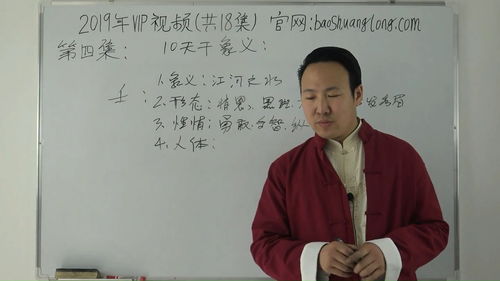 2019年VIP视频(共18集) 官网:baoshuanglong.com
第四集: 10天干象义:
1.象义:江河之水
壬: 2.形态:
3.性情:勇敢
4.人体: